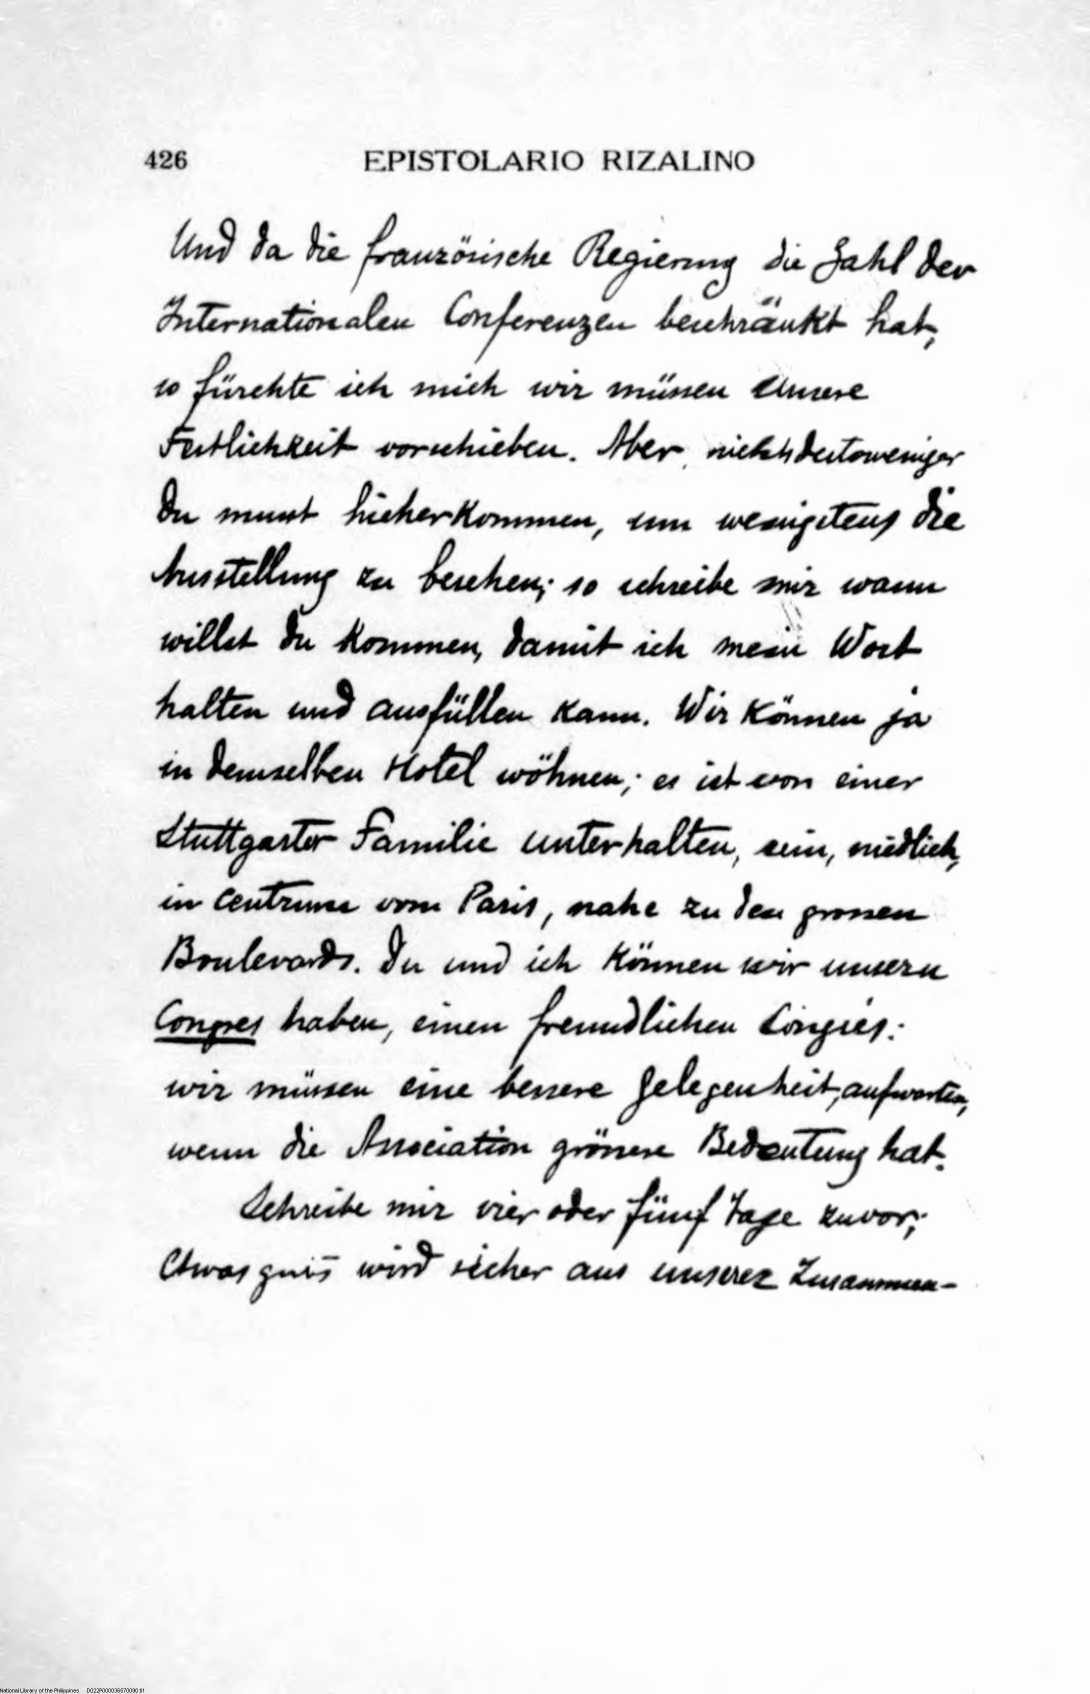 426 EPISTOLARIO RIZALINO
Und da die französische Regierung die Zahl der
Internationalen Conferenzen beschränkt hat,
so fürchte ich mich wir müssen unsere
Festlichkeit vorschieben. Aber nichtsdestoweniger
du musst hieherkommen, um wenigstens die
Ausstellung zu besehen; so schreibe mir wann
willst du kommen, damit ich mein Wort
halten und ausfüllen kann. Wir können ja
in demselben Hotel wöhnen; es ist von einer
Stuttgarter Familie unterhalten, niedlich,
in centrum vom Paris, nahe zu den grossen
Boulevards. Du und ich können wir unsern
Congres haben, einen freundlichen Congrés:
wir müssen eine bessere Gelegenheit, aufwarten,
wenn die Association grössere Bedeutung hat.
Schreibe mir vier oder fünf Tage zuvor;
Etwas wird sicher aus unserer Zusammen-
National Library of the Philippines